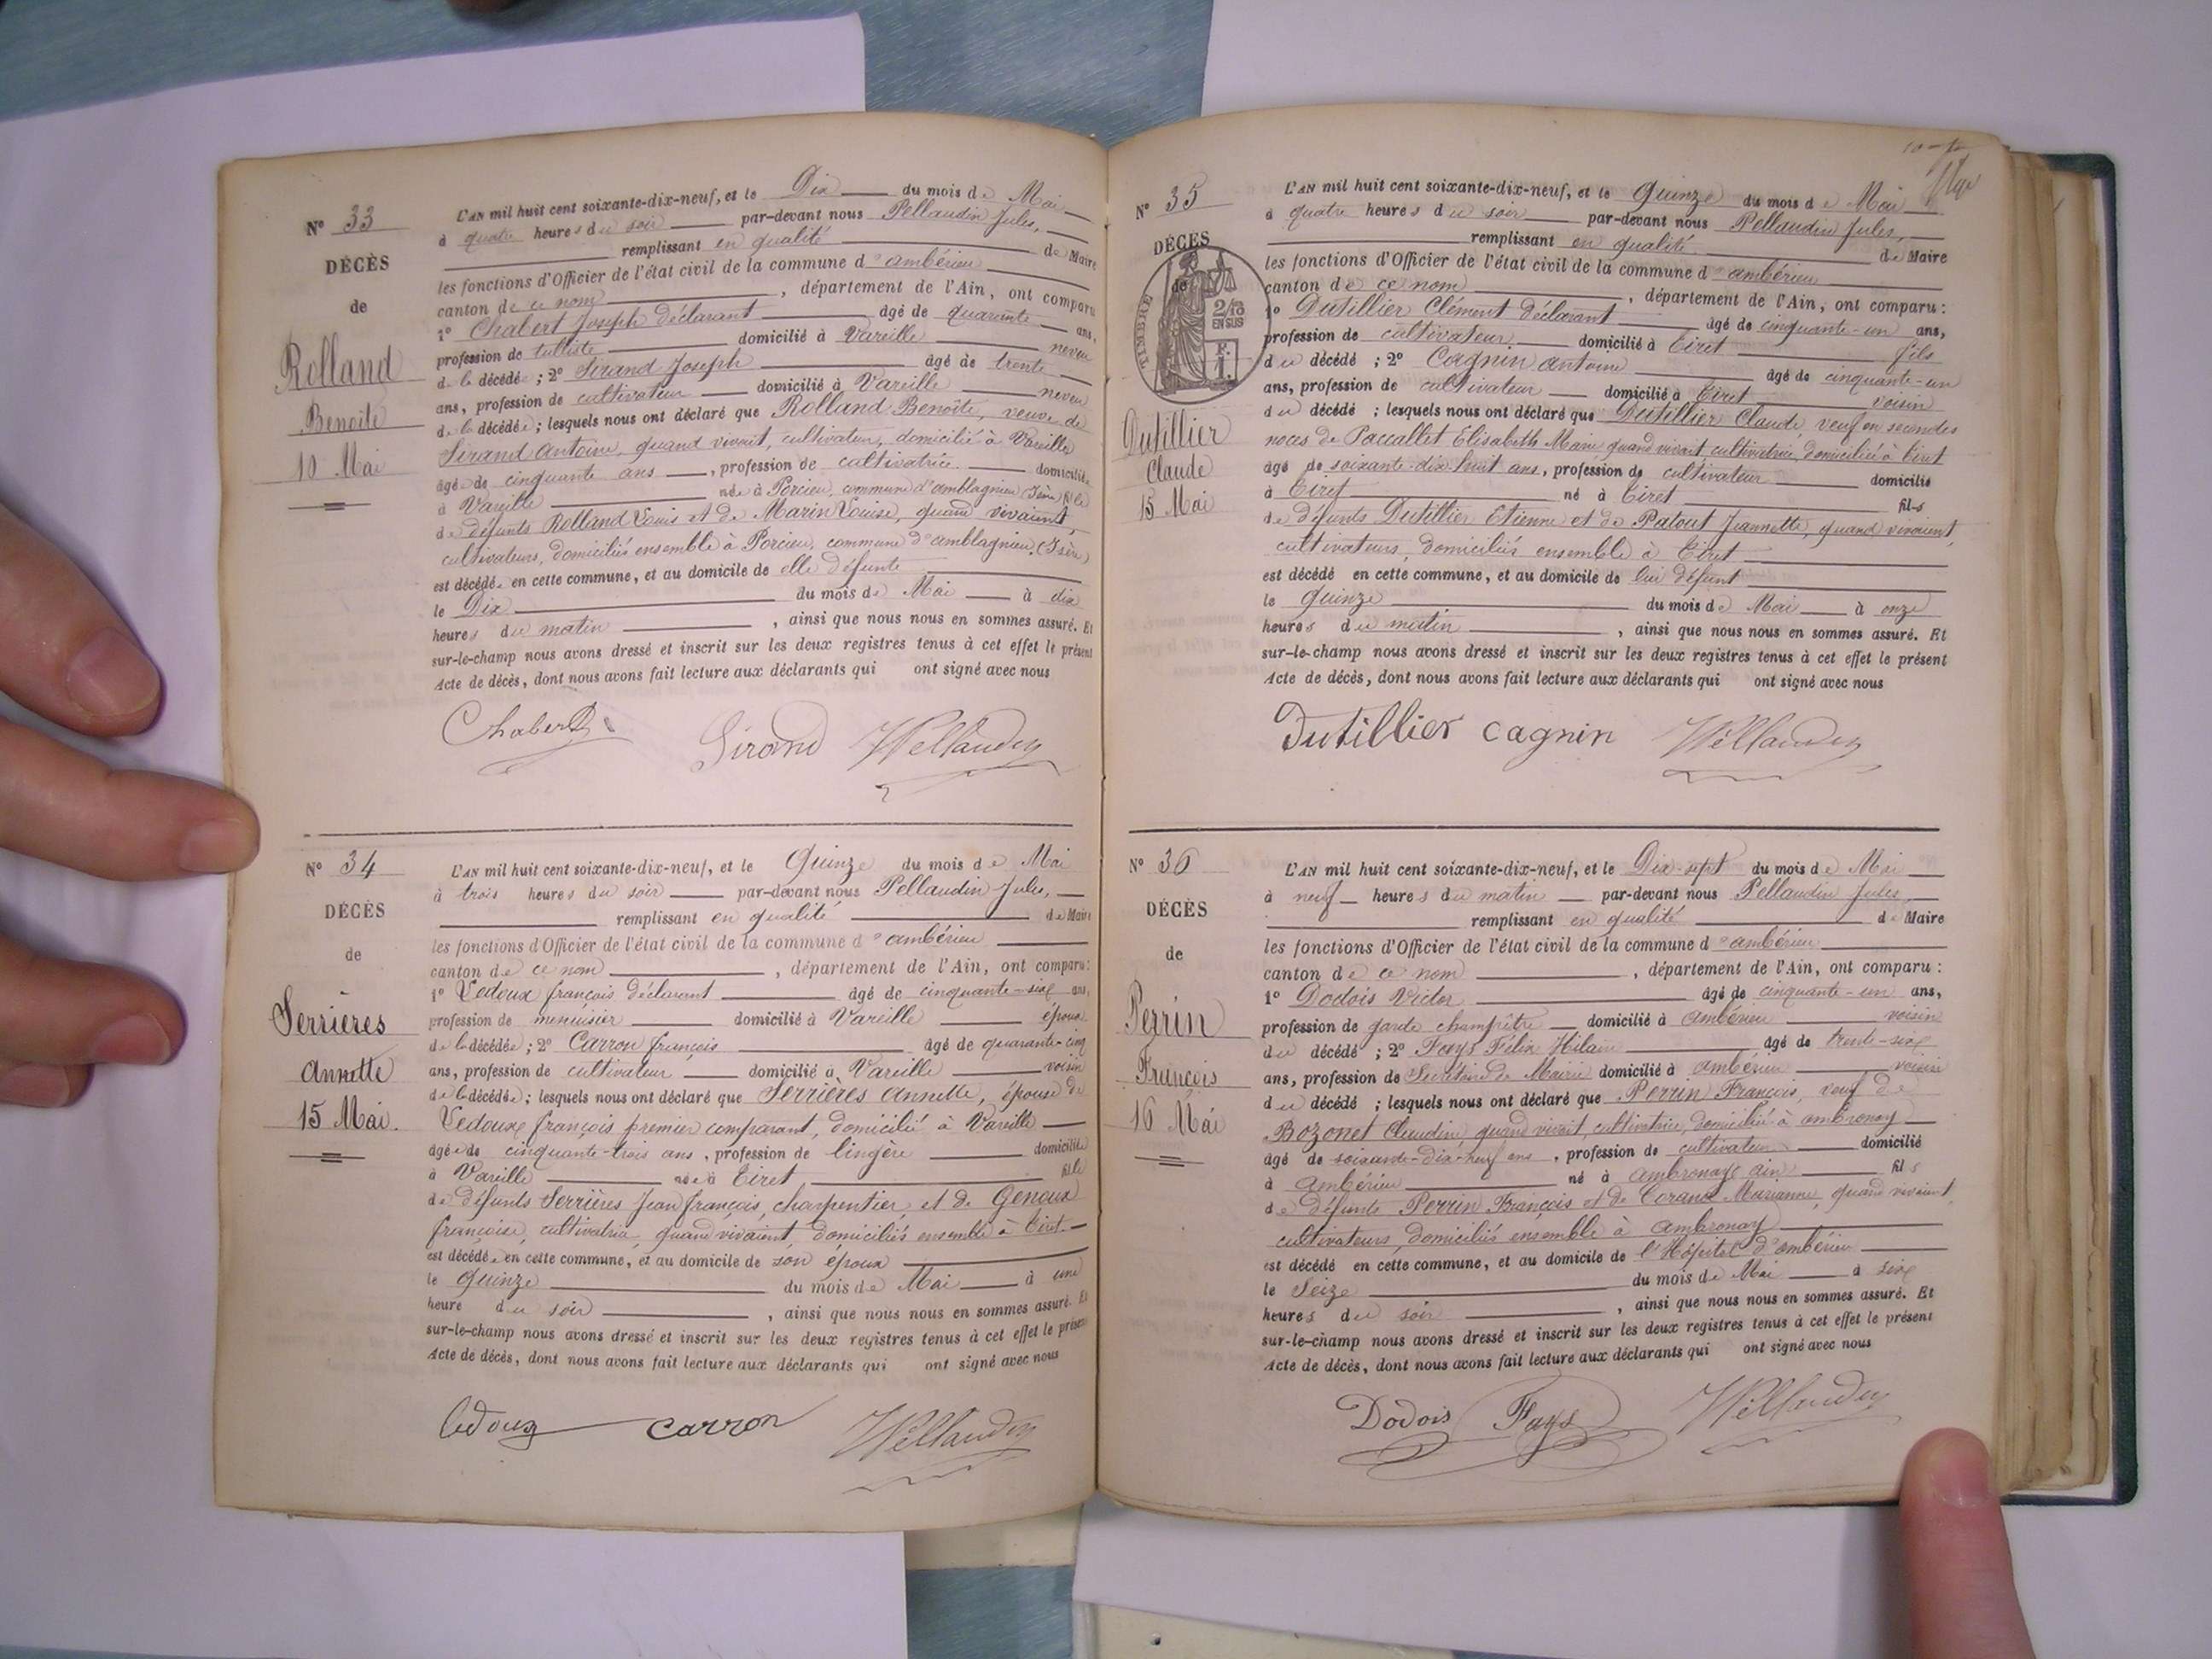 N° 33
DÉCÈS
de
Rolland
Benoite
10 Mai
L'AN mil huit cent soixante-dix-neuf, et le Dix du mois de Mai
à quatre heures du soir par-devant nous Pellaudin Jules,
remplissant en qualité de Maire
les fonctions d'Officier de l'état civil de la commune d'ambérieu
canton de ce nom, département de l'Ain, ont comparu
1° Chabert Joseph déclarant âgé de quarante ans,
profession de tulliste domicilié à Vareille neveu
de la décédée; 2° Sirand Joseph âgé de trente
ans, profession de cultivateur domicilié à Vareille neveu
de la décédée; lesquels nous ont déclaré que Rolland Benoîte, veuve de
Sirand Antoine, quand vivait, cultivateur, domicilié à Vareille
âgée de cinquante ans, profession de cultivatrice domiciliée
à Vareille née à Porcieu, commune d'amblagnieu (Isère) fille
de défunts Rolland Louis et de Marin Louise, quand vivaient,
cultivateurs, domiciliés ensemble à Porcieu, commune d'amblagnieu (Isère)
est décédée en cette commune, et au domicile de elle défunte
le Dix du mois de Mai à dix
heures du matin, ainsi que nous nous en sommes assuré. Et
sur-le-champ nous avons dressé et inscrit sur les deux registres tenus à cet effet le présent
Acte de décès, dont nous avons fait lecture aux déclarants qui ont signé avec nous
Chabert Sirand Pellaudin
N° 34
DÉCÈS
de
Serrières
Annette
15 Mai.
L'AN mil huit cent soixante-dix-neuf, et le Quinze du mois de Mai
à trois heures du soir par-devant nous Pellaudin Jules,
remplissant en qualité de Maire
les fonctions d'Officier de l'état civil de la commune d'ambérieu
canton de ce nom, département de l'Ain, ont comparu:
1° Ledoux françois déclarant âgé de cinquante-six ans,
profession de menuisier domicilié à Vareille époux
de la décédée; 2° Carron françois âgé de quarante-cinq
ans, profession de cultivateur domicilié à Vareille voisin
de la décédée; lesquels nous ont déclaré que Serrières Annette, épouse de
Ledoux françois premier comparant, domicilié à Vareille
âgée de cinquante-trois ans, profession de lingère domiciliée
à Vareille née à Tiret fille
de défunts Serrières Jean françois, charpentier et de Genoux
françoise, cultivatrice, quand vivaient, domiciliés ensemble à Tiret.
est décédée en cette commune, et au domicile de son époux
le quinze du mois de Mai à une
heure du soir, ainsi que nous nous en sommes assuré. Et
sur-le-champ nous avons dressé et inscrit sur les deux registres tenus à cet effet le présent
Acte de décès, dont nous avons fait lecture aux déclarants qui ont signé avec nous
ledoux carron Pellaudin
N° 35
DÉCÈS
de
TIMBRE
2/10
EN SUS
F.
1.
Dutillier
Claude
15 Mai
L'AN mil huit cent soixante-dix-neuf, et le Quinze du mois de Mai
à quatre heures du soir par-devant nous Pellaudin Jules,
remplissant en qualité de Maire
les fonctions d'Officier de l'état civil de la commune d'ambérieu
canton de ce nom, département de l'Ain, ont comparu:
1° Dutillier Clément déclarant âgé de cinquante-un ans,
profession de cultivateur domicilié à Tiret fils
du décédé; 2° Cagnin antoine âgé de cinquante-un
ans, profession de cultivateur domicilié à Tiret voisin
du décédé; lesquels nous ont déclaré que Dutillier Claude, veuf en secondes
noces de Paccallet Elisabeth Marie quand vivait, cultivatrice, domiciliée à Tiret
âgé de soixante-dix-huit ans, profession de cultivateur domicilié
à Tiret né à Tiret fils
de défunts Dutillier Etienne et de Patout Jeannette, quand vivaient,
cultivateurs, domiciliés ensemble à Tiret
est décédé en cette commune, et au domicile de lui défunt
le Quinze du mois de Mai à onze
heures du matin, ainsi que nous nous en sommes assuré. Et
sur-le-champ nous avons dressé et inscrit sur les deux registres tenus à cet effet le présent
Acte de décès, dont nous avons fait lecture aux déclarants qui ont signé avec nous
Dutillier cagnin Pellaudin
N° 36
DÉCÈS
de
Perrin
François
16 Mai
L'AN mil huit cent soixante-dix-neuf, et le Dix-sept du mois de Mai
à neuf heures du matin par-devant nous Pellaudin Jules,
remplissant en qualité de Maire
les fonctions d'Officier de l'état civil de la commune d'ambérieu
canton de ce nom, département de l'Ain, ont comparu:
1° Dodois Victor âgé de cinquante-un ans,
profession de garde champêtre domicilié à ambérieu voisin
du décédé; 2° Fays Félix Hilaire âgé de trente-six
ans, profession de Secrétaire de Mairie domicilié à ambérieu voisin
du décédé; lesquels nous ont déclaré que Perrin François, veuf de
Bozonet Claudine, quand vivait, cultivatrice, domiciliée à ambronay
âgé de soixante-dix-neuf ans, profession de cultivateur domicilié
à ambérieu né à ambronay ain fils
de défunts Perrin François et de Marianne, quand vivaient,
cultivateurs, domiciliés ensemble à ambronay
est décédé en cette commune, et au domicile de l'Hôpital d'ambérieu
le Seize du mois de Mai à six
heures du soir, ainsi que nous nous en sommes assuré. Et
sur-le-champ nous avons dressé et inscrit sur les deux registres tenus à cet effet le présent
Acte de décès, dont nous avons fait lecture aux déclarants qui ont signé avec nous
Dodois Fays Pellaudin